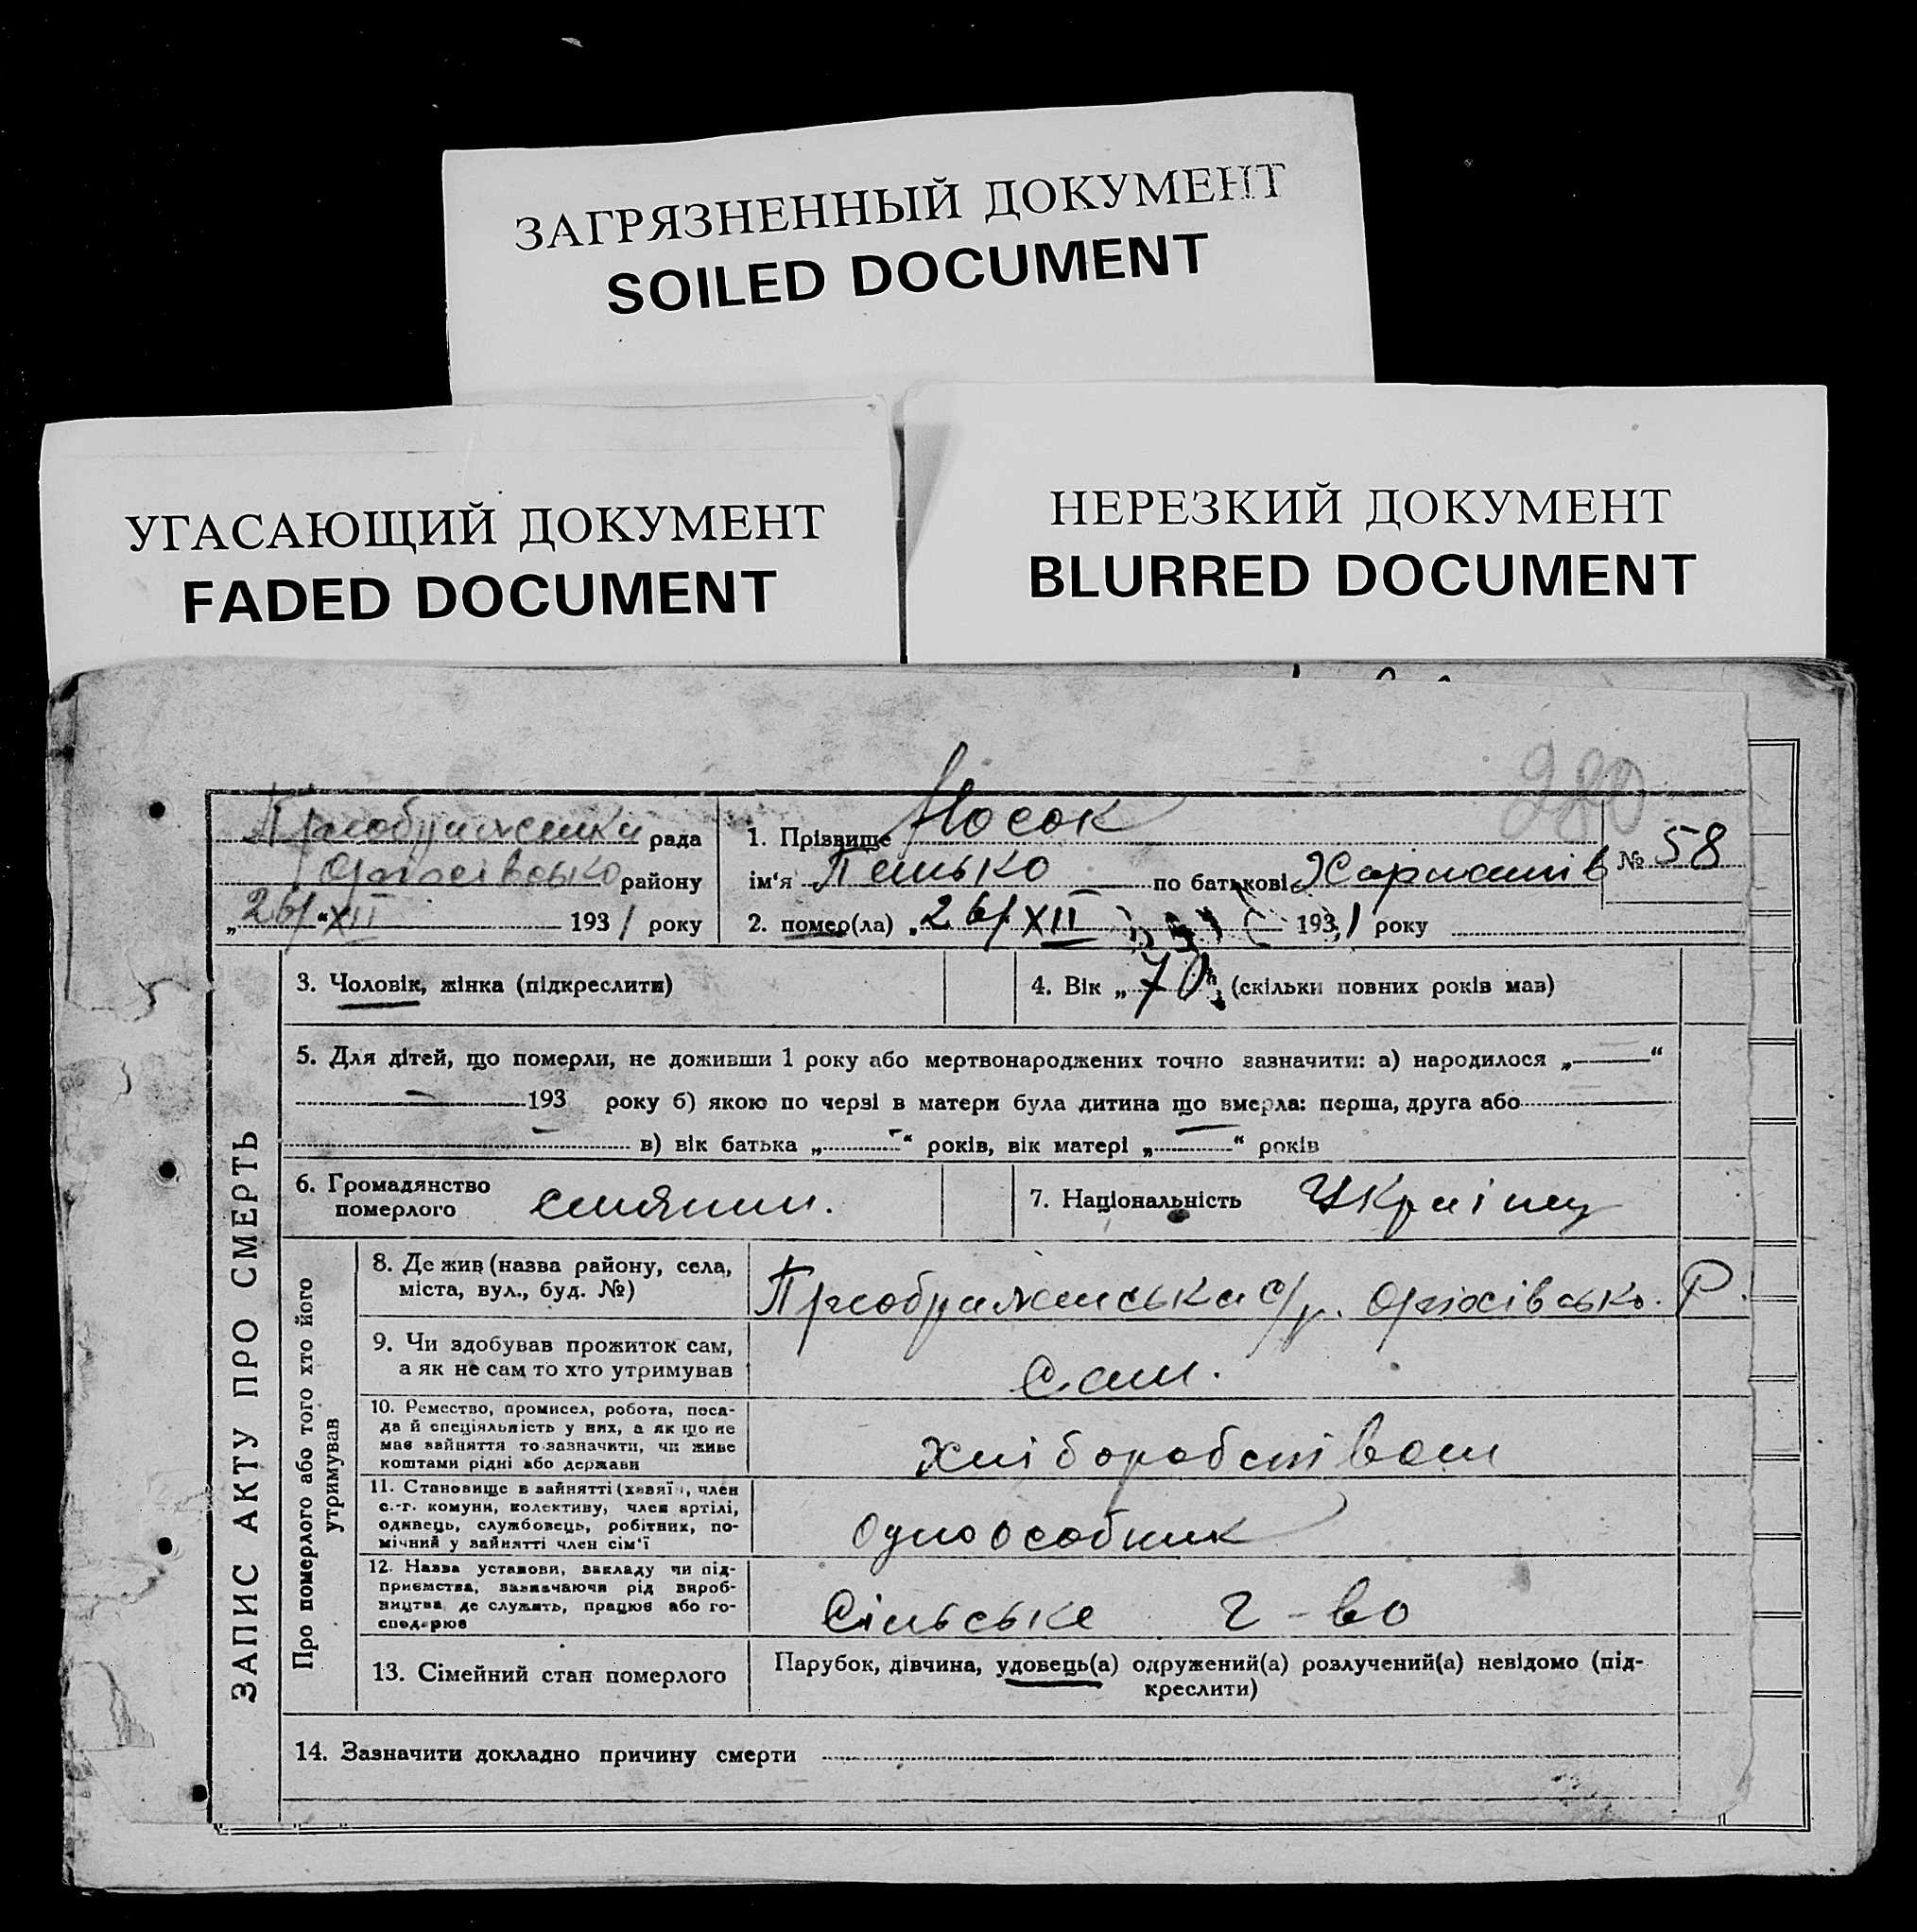 ЗАГРЯЗНЕННЫЙ ДОКУМЕНТ
SOILED DOCUMENT
УГАСАЮЩИЙ ДОКУМЕНТ
FADED DOCUMENT
НЕРЕЗКИЙ ДОКУМЕНТ
BLURRED DOCUMENT
280
рада
Оріхівсько району
„26/“ XII 1931 року
1. Прізвище Носок
ім‘я Панько по батькові
№ 58
2. помер(ла) „26/ XII 1931 року
ЗАПИС АКТУ ПРО СМЕРТЬ
3. Чоловік, жінка (підкреслити)
4. Вік „70“ (скільки повних років мав)
5. Для дітей, що померли, не доживши 1 року або мертвонароджених точно зазначити: а) народилося „—“
193 року б) якою по черзі в матери була дитина що вмерла: перша, друга або
в) вік батька „—“ років, вік матері „—“ років
6. Громадянство
померлого селянин.
7. Національність Украінц
Про померлого або того хто його
утримував
8. Де жив (назва району, села,
міста, вул., буд. №)
Преображенська с/р. Оріхівсько. Р.
9. Чи здобував прожиток сам,
а як не сам то хто утримував
Сам.
10. Ремество, промисел, робота, поса-
да й спеціяльність у них, а як що не
має зайняття то зазначити, чи живе
коштами рідні або держави
Хліборобством
11. Становище в зайнятті (хазяїн, член
с.-г. комуни, колективу, член артілі,
одинець, службовець, робітник, по-
мічний у зайнятті член сім‘ї
Одноособник
12. Назва установи, закладу чи під-
приємства, зазначаючи рід вироб-
ництва, де служить, працює або го-
сподарює
Сільське г-во
13. Сімейний стан померлого
Парубок, дівчина, удовець(а) одружений(а) розлучений(а) невідомо (під-
креслити)
14. Зазначити докладно причину смерти